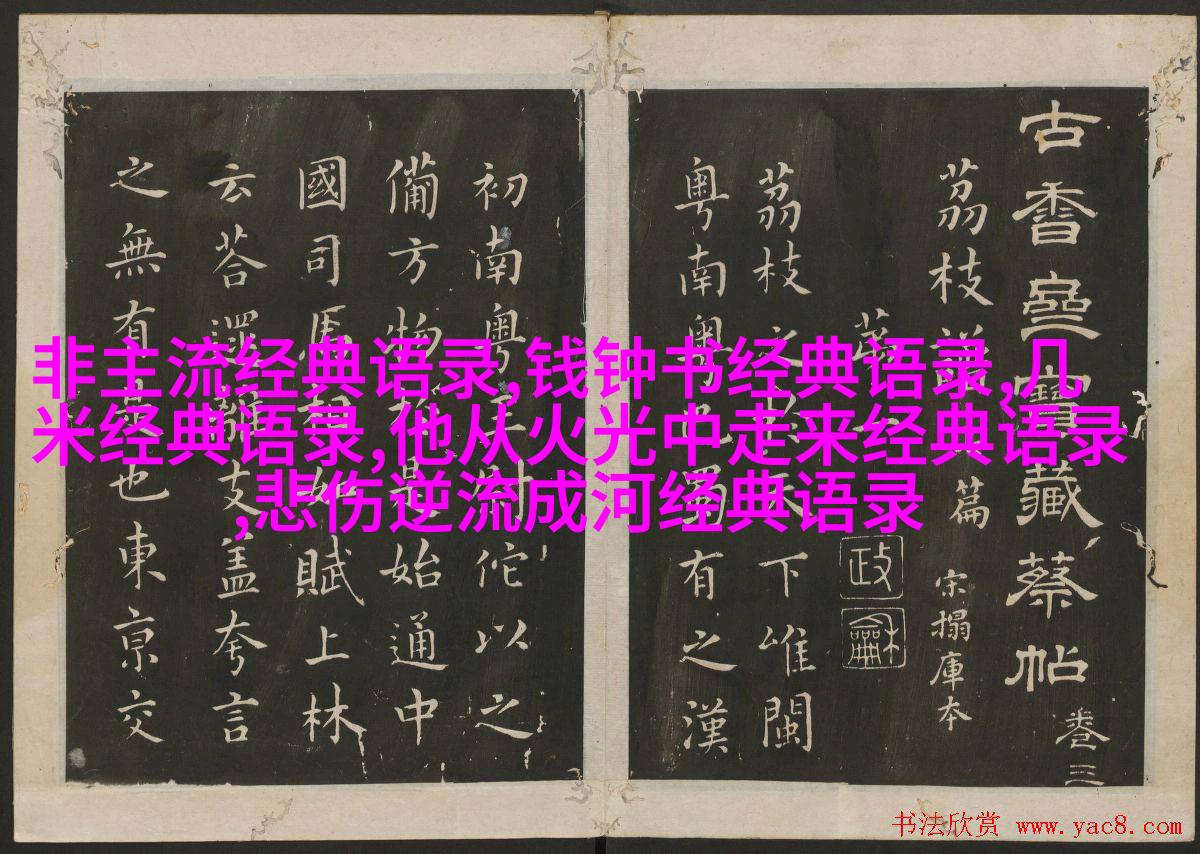 古香齋寶藏蔡帖
卷三
荔枝譜 篇
宋搨庫本
第一
政龢
荔枝之於天下唯閩
粵南粵巴蜀有之漢
初南粵王尉佗以之
備方物於是始通中
國司馬相如賦上林
云荅遝離支盖夸言
之無有是也東京交
非主流经典语录,钱钟书经典语录,几
米经典语录,他从火光中走来经典语录
,悲伤逆流成河经典语录
书法欣赏 www.yac8.com